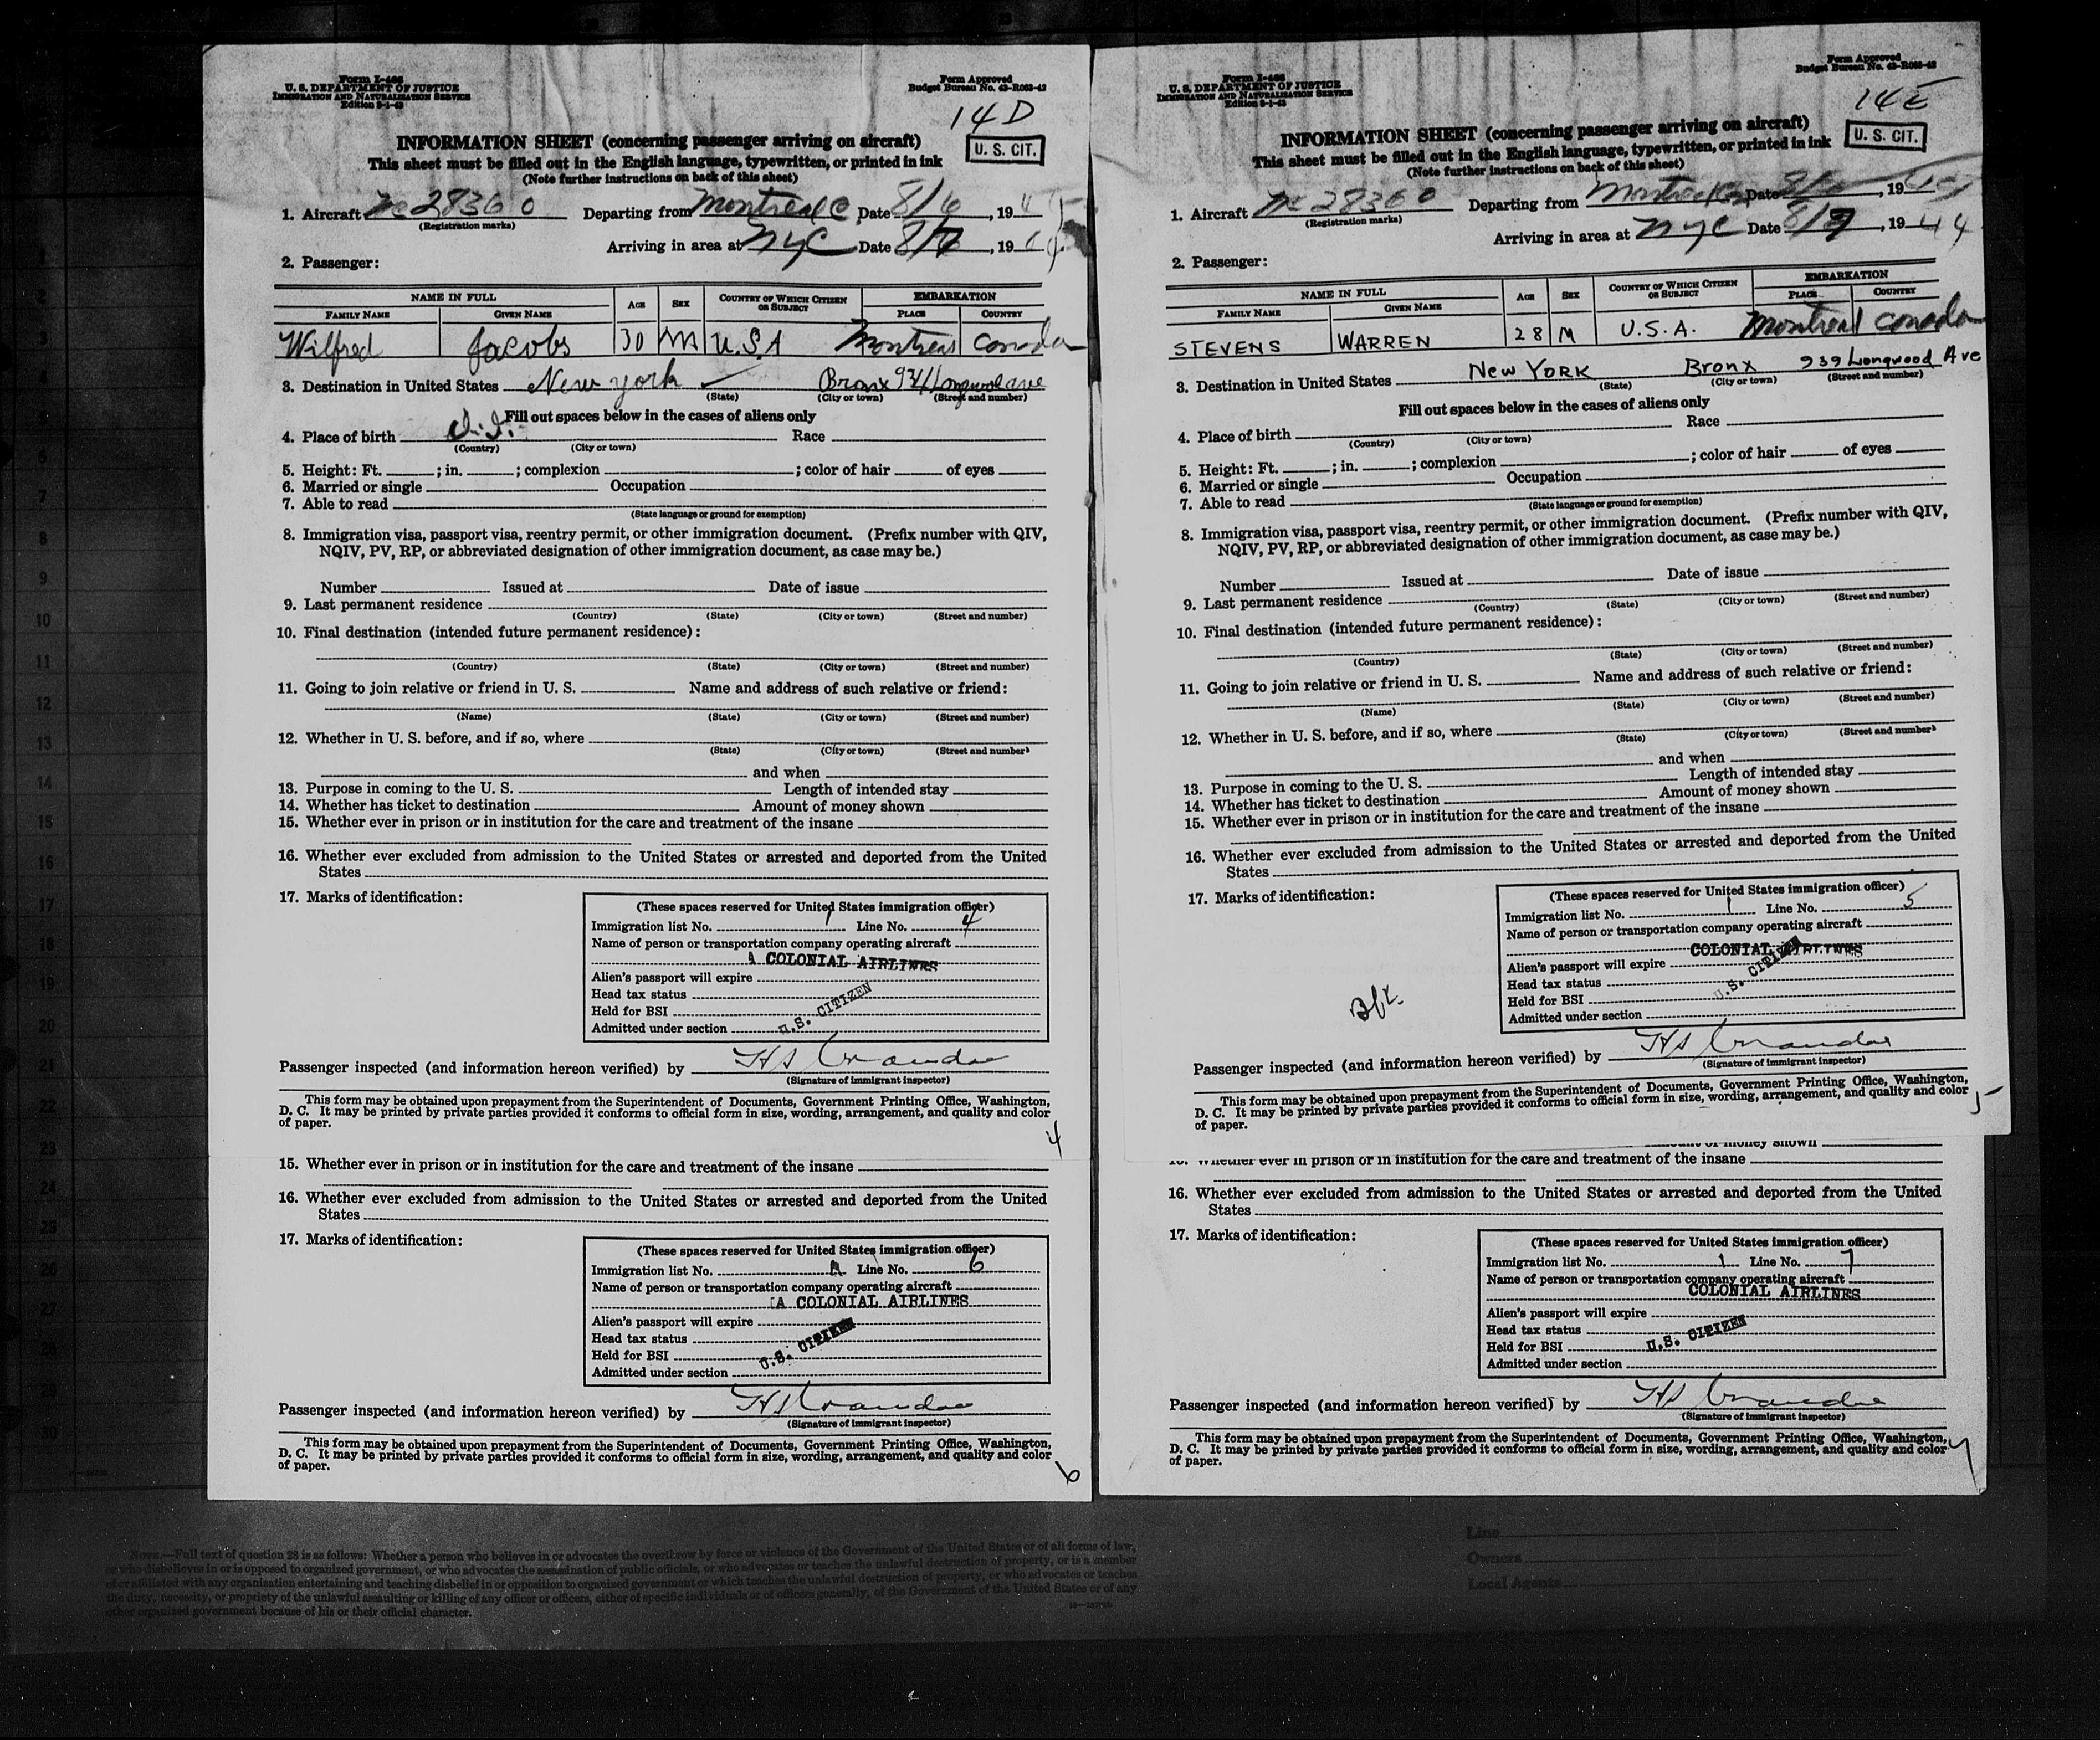 Form I-466
U. S. DEPARTMENT OF JUSTICE
IMMIGRATION AND NATURALIZATION SERVICE
Edition 8-1-43
Form Approved
Budget Bureau No. 43-R083-42
14D
U. S. CIT.
INFORMATION SHEET (concerning passenger arriving on aircraft)
This sheet must be filled out in the English language, typewritten, or printed in ink
(Note further instructions on back of this sheet)
1. Aircraft NC 28360 Departing from Montreal C Date 8/6, 19
(Registration marks)
Arriving in area at NYC Date 8/ , 19
2. Passenger:
NAME IN FULL AGE SEX COUNTRY OF WHICH CITIZEN OR SUBJECT EMBARKATION
FAMILY NAME GIVEN NAME PLACE COUNTRY
Wilfred Jacobs 30 M U.S.A Montreal Canada
3. Destination in United States New York Bronx Longwood ave
(State) (City or town) (Street and number)
Fill out spaces below in the cases of aliens only
4. Place of birth Race
(Country) (City or town)
5. Height: Ft. ; in. ; complexion ; color of hair of eyes
6. Married or single Occupation
7. Able to read
(State language or ground for exemption)
8. Immigration visa, passport visa, reentry permit, or other immigration document. (Prefix number with QIV,
NQIV, PV, RP, or abbreviated designation of other immigration document, as case may be.)
Number Issued at Date of issue
9. Last permanent residence
(Country) (State) (City or town) (Street and number)
10. Final destination (intended future permanent residence):
(Country) (State) (City or town) (Street and number)
11. Going to join relative or friend in U. S. Name and address of such relative or friend:
(Name) (State) (City or town) (Street and number)
12. Whether in U. S. before, and if so, where
(State) (City or town) (Street and number)
and when
13. Purpose in coming to the U. S. Length of intended stay
14. Whether has ticket to destination Amount of money shown
15. Whether ever in prison or in institution for the care and treatment of the insane
16. Whether ever excluded from admission to the United States or arrested and deported from the United
States
17. Marks of identification:
(These spaces reserved for United States immigration officer)
Immigration list No. 1 Line No. 4
Name of person or transportation company operating aircraft
A COLONIAL AIRLINES
Alien's passport will expire
Head tax status
Held for BSI
Admitted under section
U.S. CITIZEN
Passenger inspected (and information hereon verified) by
(Signature of immigrant inspector)
This form may be obtained upon prepayment from the Superintendent of Documents, Government Printing Office, Washington,
D. C. It may be printed by private parties provided it conforms to official form in size, wording, arrangement, and quality and color
of paper.
4
15. Whether ever in prison or in institution for the care and treatment of the insane
16. Whether ever excluded from admission to the United States or arrested and deported from the United
States
17. Marks of identification:
(These spaces reserved for United States immigration officer)
Immigration list No. Line No. 6
Name of person or transportation company operating aircraft
A COLONIAL AIRLINES
Alien's passport will expire
Head tax status
Held for BSI
Admitted under section
U.S. CITIZEN
Passenger inspected (and information hereon verified) by
(Signature of immigrant inspector)
This form may be obtained upon prepayment from the Superintendent of Documents, Government Printing Office, Washington,
D. C. It may be printed by private parties provided it conforms to official form in size, wording, arrangement, and quality and color
of paper.
6
Form I-466
U. S. DEPARTMENT OF JUSTICE
IMMIGRATION AND NATURALIZATION SERVICE
Edition 8-1-43
Form Approved
Budget Bureau No. 43-R083-42
14E
U. S. CIT.
INFORMATION SHEET (concerning passenger arriving on aircraft)
This sheet must be filled out in the English language, typewritten, or printed in ink
(Note further instructions on back of this sheet)
1. Aircraft NC 28360 Departing from Montreal Date , 19
(Registration marks)
Arriving in area at NYC Date 8/ , 19 44
2. Passenger:
NAME IN FULL AGE SEX COUNTRY OF WHICH CITIZEN OR SUBJECT EMBARKATION
FAMILY NAME GIVEN NAME PLACE COUNTRY
STEVENS WARREN 28 M U.S.A. Montreal Canada
3. Destination in United States New YORK Bronx 939 Longwood Ave
(State) (City or town) (Street and number)
Fill out spaces below in the cases of aliens only
4. Place of birth Race
(Country) (City or town)
5. Height: Ft. ; in. ; complexion ; color of hair of eyes
6. Married or single Occupation
7. Able to read
(State language or ground for exemption)
8. Immigration visa, passport visa, reentry permit, or other immigration document. (Prefix number with QIV,
NQIV, PV, RP, or abbreviated designation of other immigration document, as case may be.)
Number Issued at Date of issue
9. Last permanent residence
(Country) (State) (City or town) (Street and number)
10. Final destination (intended future permanent residence):
(Country) (State) (City or town) (Street and number)
11. Going to join relative or friend in U. S. Name and address of such relative or friend:
(Name) (State) (City or town) (Street and number)
12. Whether in U. S. before, and if so, where
(State) (City or town) (Street and number)
and when
13. Purpose in coming to the U. S. Length of intended stay
14. Whether has ticket to destination Amount of money shown
15. Whether ever in prison or in institution for the care and treatment of the insane
16. Whether ever excluded from admission to the United States or arrested and deported from the United
States
17. Marks of identification:
(These spaces reserved for United States immigration officer)
Immigration list No. 1 Line No. 5
Name of person or transportation company operating aircraft
COLONIAL AIRLINES
Alien's passport will expire
Head tax status
Held for BSI
Admitted under section
U.S. CITIZEN
Passenger inspected (and information hereon verified) by
(Signature of immigrant inspector)
This form may be obtained upon prepayment from the Superintendent of Documents, Government Printing Office, Washington,
D. C. It may be printed by private parties provided it conforms to official form in size, wording, arrangement, and quality and color
of paper.
5
Amount of money shown
15. Whether ever in prison or in institution for the care and treatment of the insane
16. Whether ever excluded from admission to the United States or arrested and deported from the United
States
17. Marks of identification:
(These spaces reserved for United States immigration officer)
Immigration list No. 1 Line No. 7
Name of person or transportation company operating aircraft
COLONIAL AIRLINES
Alien's passport will expire
Head tax status
Held for BSI
Admitted under section
U.S. CITIZEN
Passenger inspected (and information hereon verified) by
(Signature of immigrant inspector)
This form may be obtained upon prepayment from the Superintendent of Documents, Government Printing Office, Washington,
D. C. It may be printed by private parties provided it conforms to official form in size, wording, arrangement, and quality and color
of paper.
7
Line
Owners
Local Agents
NOTE.—Full text of question 28 is as follows: Whether a person who believes in or advocates the overthrow by force or violence of the Government of the United States or of all forms of law,
or who disbelieves in or is opposed to organized government, or who advocates the assassination of public officials, or who advocates or teaches the unlawful destruction of property, or is a member
of or affiliated with any organization entertaining and teaching disbelief in or opposition to organized government or which teaches the unlawful destruction of property, or who advocates or teaches
the duty, necessity, or propriety of the unlawful assaulting or killing of any officer or officers, either of specific individuals or of officers generally, of the Government of the United States or of any
other organized government because of his or their official character.